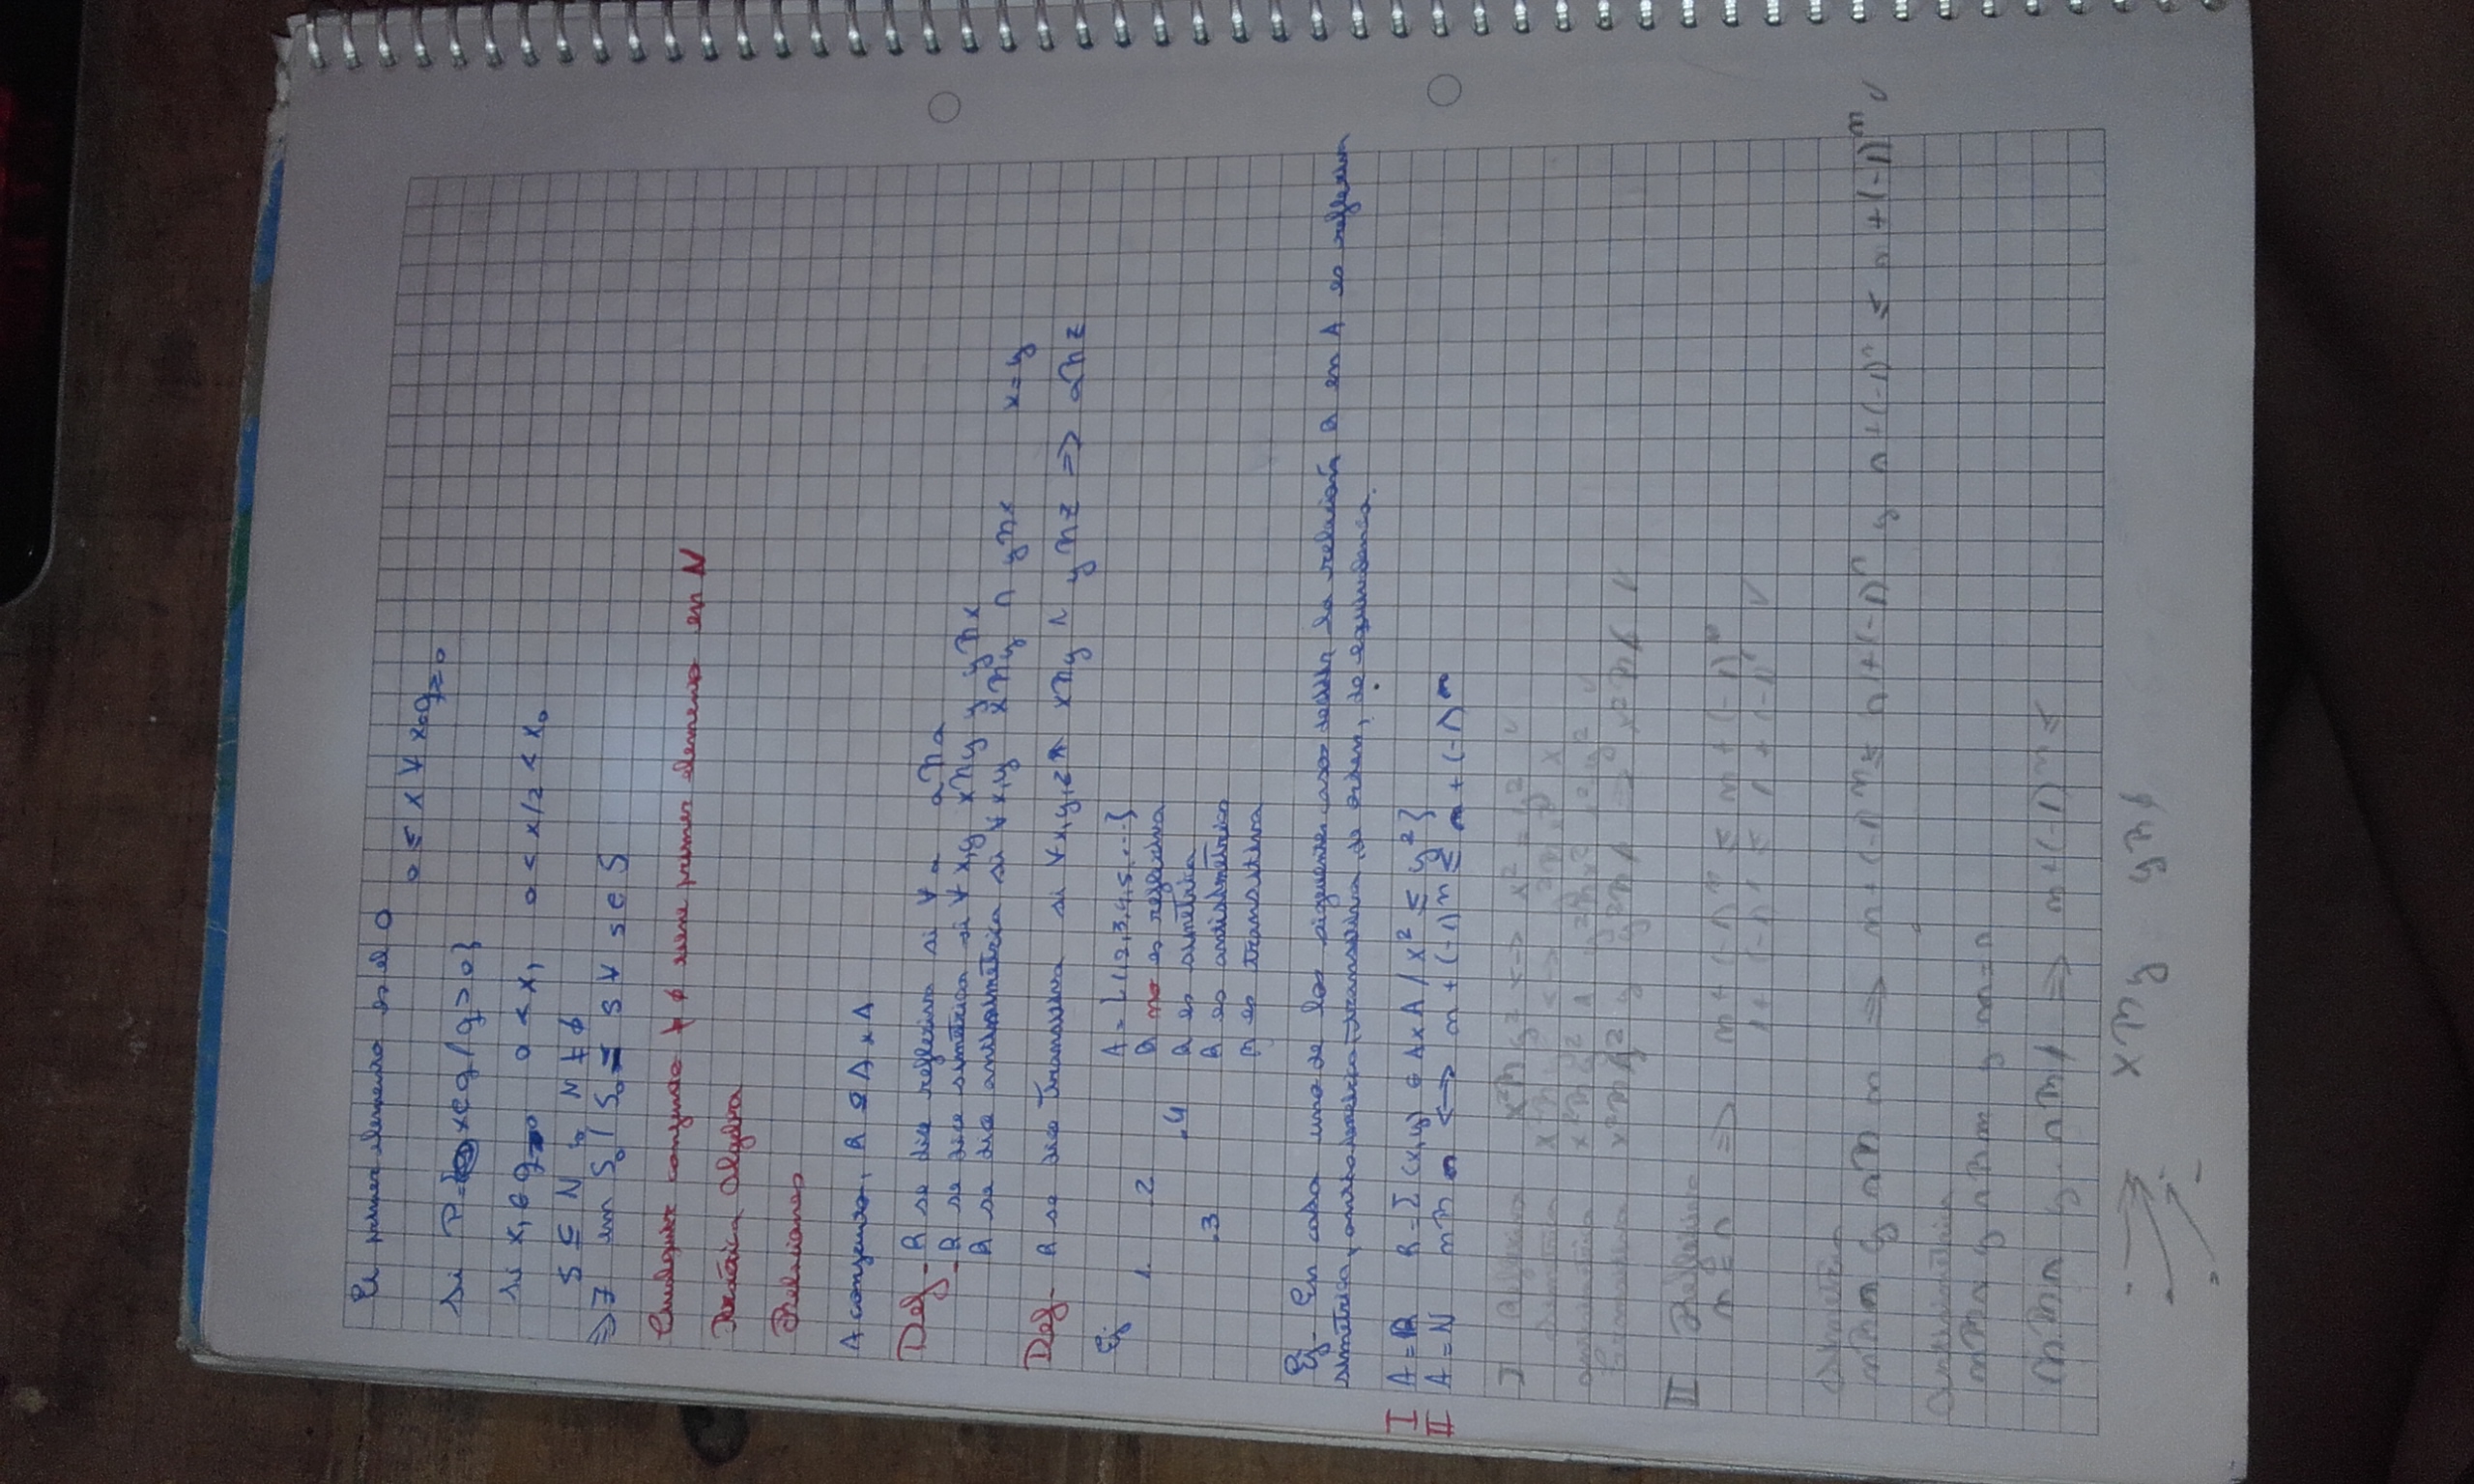 El primer elemento es el 0
0 ≤ x ∀ x ∈ Q≥0
Si P={x∈Q/Q>0}
Si x, ∈ Q>0 0 < x, 0 < x/2 < x0
S ⊆ N y N ≠ ∅
⇒ ∃ un S0 / S0 ≤ s ∀ s ∈ S
Cualquier conjunto ≠ ∅ tiene primer elemento en N
Práctica Algebra
Relaciones
A conjunto, R ⊆ A x A
Def - R se dice reflexiva si ∀ a aRa
- R se dice simétrica si ∀ x,y xRy y yRx
R se dice antisimétrica si ∀ x,y xRy ∧ yRx x=y
Def - R se dice transitiva si ∀ x,y,z xRy ∧ yRz ⇒ aRz
Ej A = {1,2,3,4,5,...}
1. .2 R no es reflexiva
.4 R es simétrica
.3 R es antisimétrica
R es transitiva
Ej - En cada uno de los siguientes casos decidir la relación R en A es reflexiva
simétrica, antisimétrica, transitiva, de orden, de equivalencia.
I A = R R = {(x,y) ∈ A x A / x² ≤ y²}
II A = N mRn ⟷ m + (-1)^m ≤ n + (-1)^n
I Reflexiva x²Ry² ⟷ x² = y² ✓
Simétrica
antisimétrica x²Ry² ∧ y²Rx² x²=y² ✓
Transitiva x²Ry² y y²Rt ⇒ x²Rt ✓
II Reflexiva
m = n ⇒ m + (-1)^m ≤ m + (-1)^m
1 + (-1)^1 ≤ 1 + (-1)^1 ✓
Simetrica
mRn y nRm ⇒ m + (-1)^m ≤ n + (-1)^n y n + (-1)^n ≤ m + (-1)^m ✓
Antisimétrica
mRn y nRm y m = n
mRn y nRt ⇒ m + (-1)^m ≤
xRy yRt